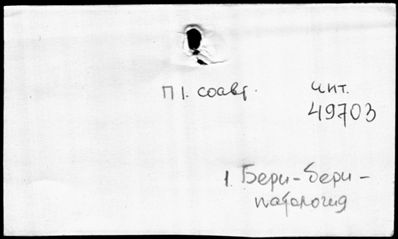 П 1. соавт.
инт.
49703
1. Бери-бери-
патология